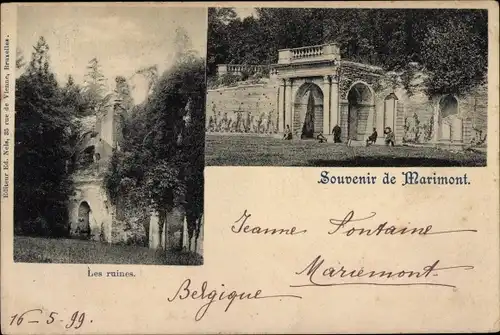 Editeur Ed. Nels, 25 rue de Vienne, Bruxelles.
Souvenir de Marimont.
Jeanne Fontaine
Mariemont
Belgique
Les ruines.
16-5-99